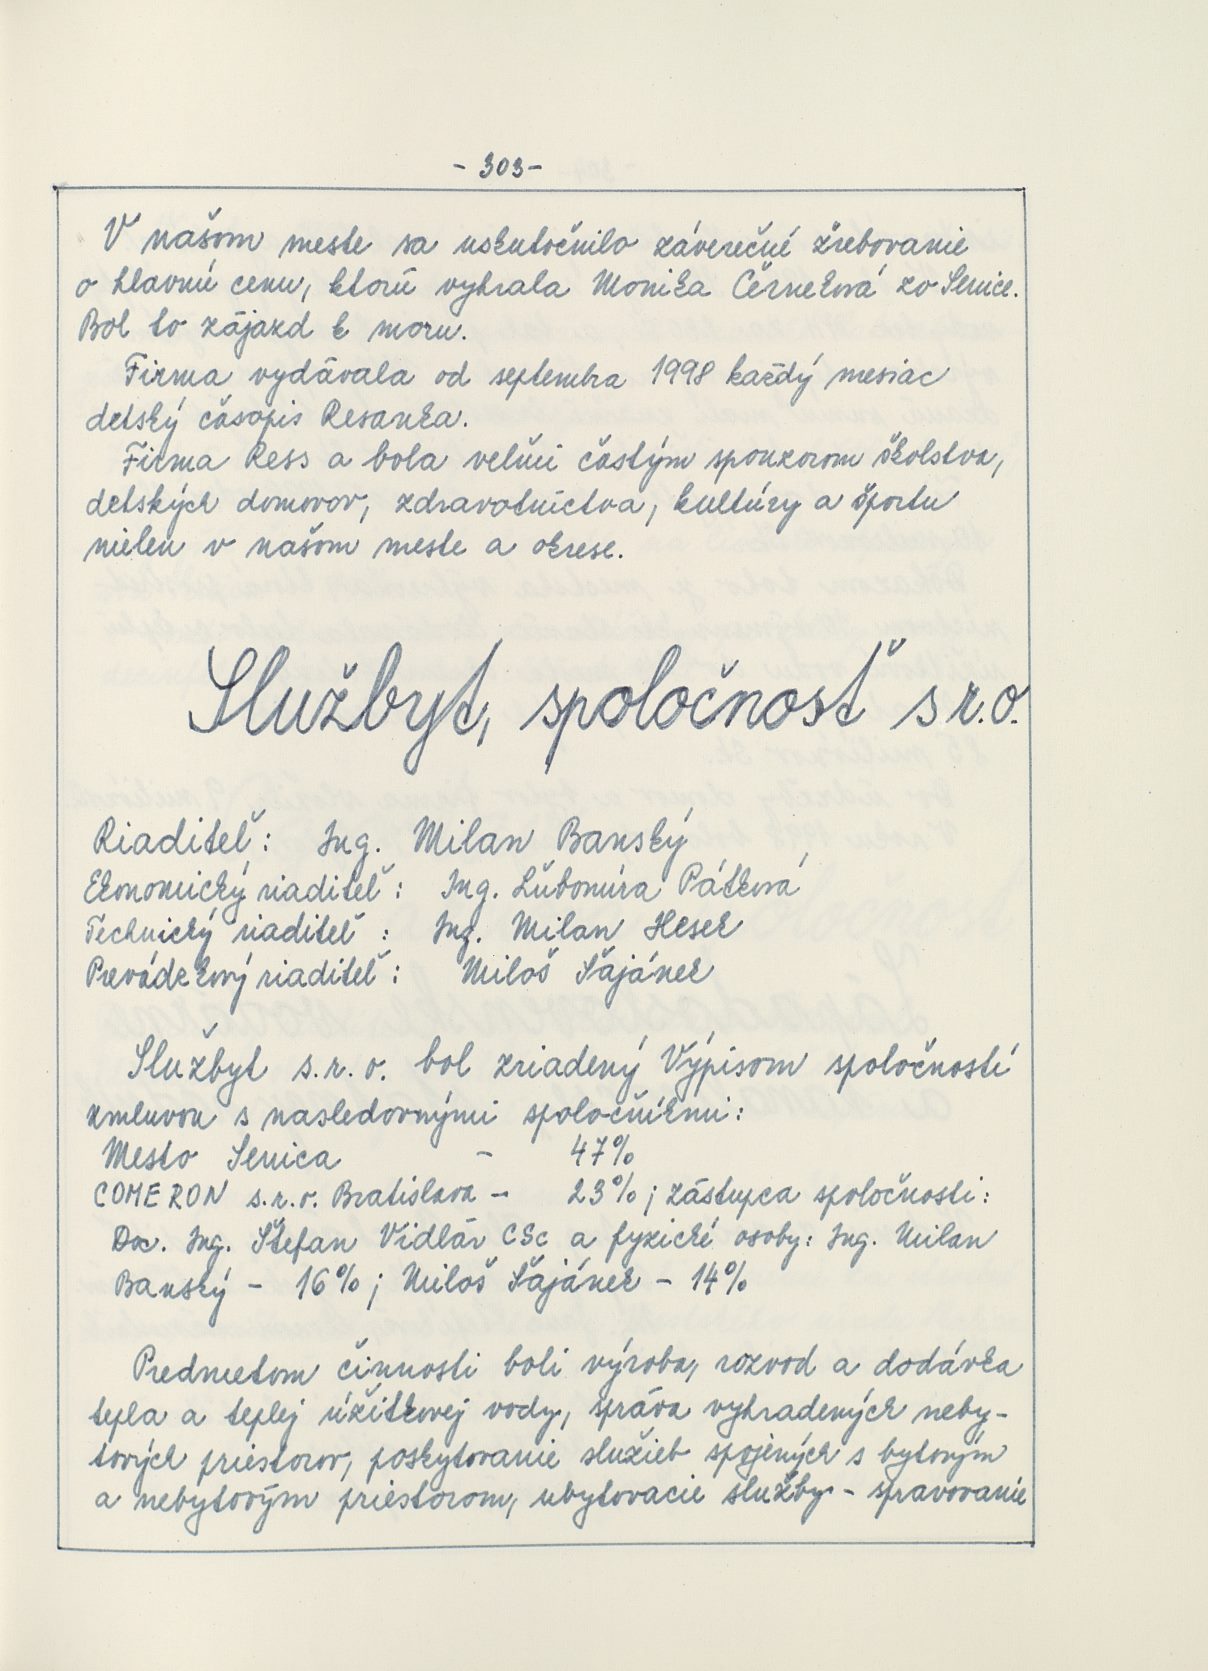 - 303 -
V našom meste sa uskutočnilo záverečné žrebovanie
o hlavnú cenu, ktorú vyhrala Monika Černeková zo Senice.
Bol to zájazd k moru.
Firma vydávala od septembra 1998 každý mesiac
detský časopis Resanka.
Firma Ress a bola veľmi častým sponzorom školstva,
detských domovov, zdravotníctva, kultúry a športu
nielen v našom meste a okrese.
Službyt, spoločnosť s r.o.
Riaditeľ: Ing. Milan Banský
Ekonomický riaditeľ: Ing. Ľubomíra Pátková
Technický riaditeľ: Ing. Milan Hesek
Prevádzkový riaditeľ: Miloš Šajánek
Službyt s.r.o. bol zriadený Výpisom spoločností
zmluvou s nasledovnými spoločníkmi:
Mesto Senica - 47%
COMERON s.r.o. Bratislava - 23%; zástupca spoločnosti:
Doc. Ing. Štefan Vidlár CSc a fyzické osoby: Ing. Milan
Banský - 16%; Miloš Šajánek - 14%
Predmetom činnosti boli výroba, rozvod a dodávka
tepla a teplej úžitkovej vody, správa vyhradených neby-
tových priestorov, poskytovanie služieb spojených s bytovým
a nebytovým priestorom, ubytovacie služby - spravovanie